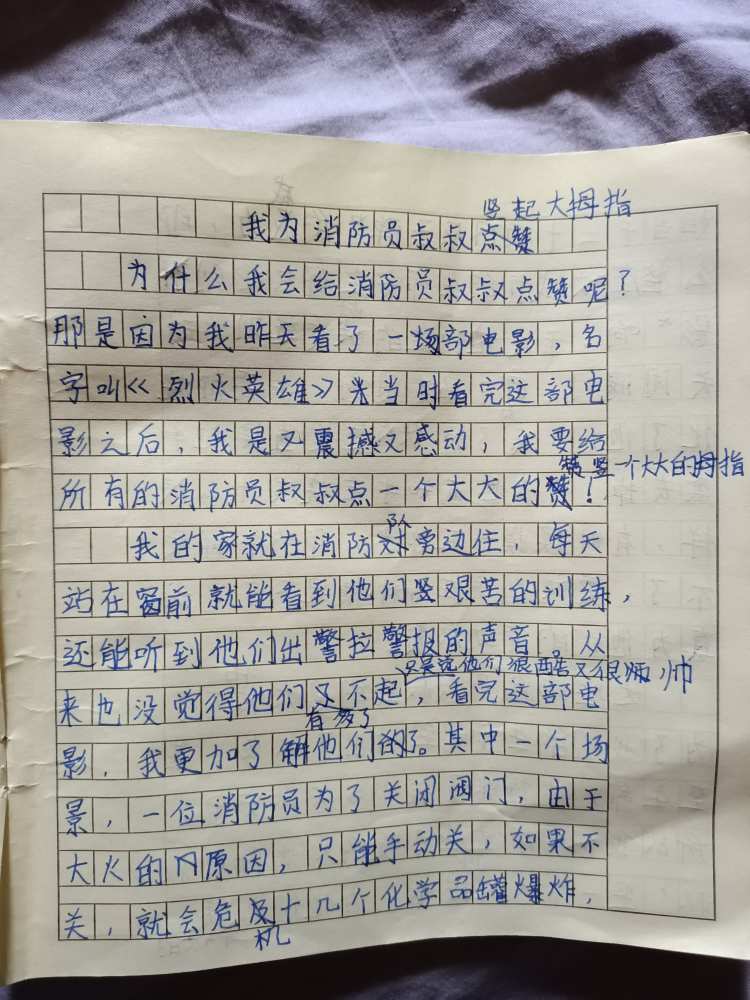 竖起大拇指
我为消防员叔叔点赞
为什么我会给消防员叔叔点赞呢？
那是因为我昨天看了一场部电影，名
字叫《烈火英雄》当时看完这部电
影之后，我是又震撼又感动，我要给
竖一个大大的拇指
所有的消防员叔叔点一个大大的赞！
队
我的家就在消防对旁边住，每天
站在窗前就能看到他们艰苦的训练，
还能听到他们出警拉警报的声音。从
只是觉他们很酷又很炳帅
来也没觉得他们了不起，看完这部电
有多了
影，我更加了解他们的了。其中一个场
景，一位消防员为了关闭阀门，由于
大火的原因，只能手动关，如果不
关，就会危及十几个化学品罐爆炸，
机